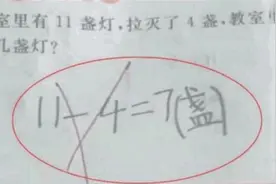 室里有 11 盏灯,拉灭了 4 盏,教室
几盏灯?
11-4=7(盏)